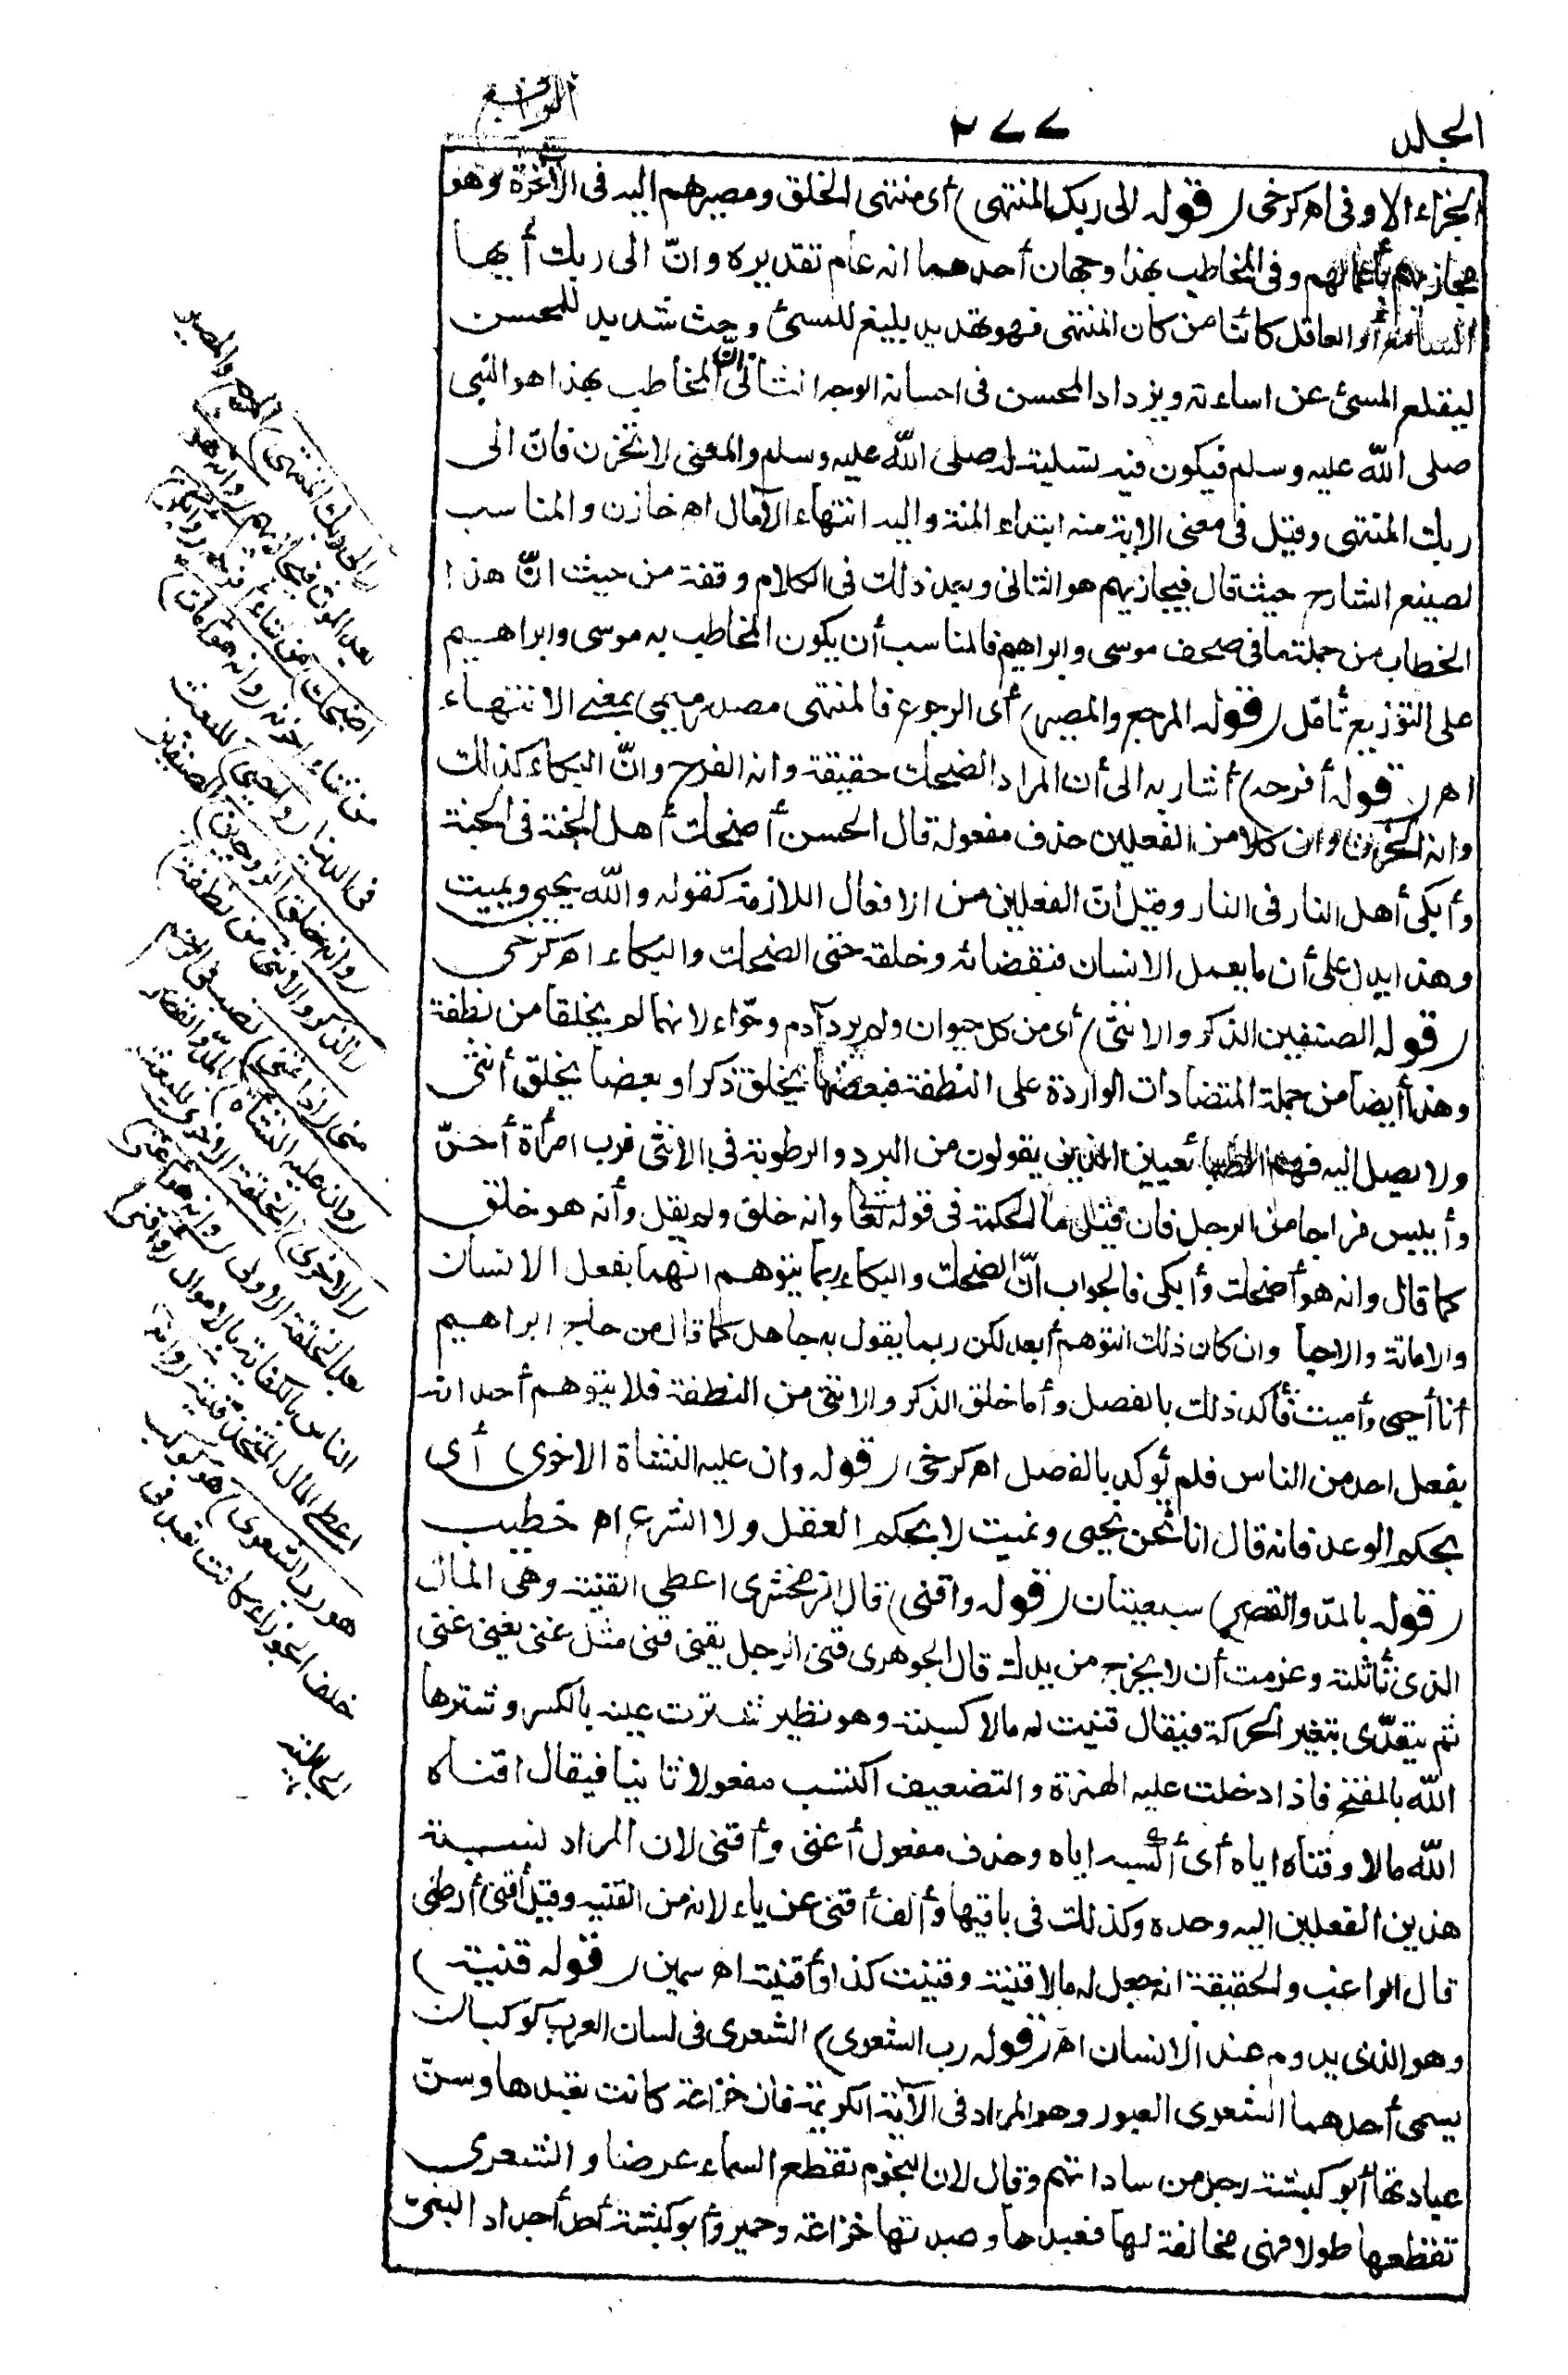 المجلد
٢٧٧
الرابع
الجزاء الاوفى اهـ كرخى (قوله الى ربك المنتهى) أى منتهى الخلق ومصيرهم اليه فى الآخرة وهو
مجازيهم بأعمالهم وفى المخاطب بهذا وجهان أحدهما انه عام تقديره وانّ الى ربك أيها
السامع أو العاقل كائنا من كان المنتهى فهو تهديد بليغ للمسئ وحث شديد للمحسن
ليقلع المسئ عن اساءته ويزداد المحسن فى احسانه الوجه الثانى أنّ المخاطب بهذا هو النبى
صلى اللّه عليه وسلم فيكون فيه تسلية له صلى اللّه عليه وسلم والمعنى لا تحزن فانّ الى
ربك المنتهى وقيل فى معنى الاية منه ابتداء المنة واليه انتهاء الآمال اهـ خازن والمناسب
لصنيع الشارح حيث قال فيجازيهم هو الثانى وبعد ذلك فى الكلام وقفة من حيث انّ هذا
الخطاب من جملة ما فى صحف موسى وابراهيم فالمناسب أن يكون المخاطب به موسى وابراهيم
على التوزيع تأمّل (قوله المرجع والمصير) أى الرجوع فالمنتهى مصدر ميمى بمعنى الانتهاء
اهـ (قوله أفرحه) أشار به الى أن المراد الضحك حقيقة وانه الفرح وانّ البكاء كذلك
وانه الحزن وان كلا من الفعلين حذف مفعوله قال الحسن أضحك أهل الجنة فى الجنة
وأبكى أهل النار فى النار وقيل انّ الفعلين من الافعال اللازمة كقوله واللّه يحيى ويميت
وهذا يدل على أن ما يعمل الانسان فبقضائه وخلقه حتى الضحك والبكاء اهـ كرخى
(قوله الصنفين الذكر والانثى) أى من كل حيوان ولم يرد آدم وحوّاء لانهما لم يخلقا من نطفة
وهذا أيضا من جملة المتضادات الواردة على النطفة فبعضها يخلق ذكرا وبعضا يخلق أنثى
ولا يصل اليه فهم الطبائعيين الذين يقولون من البرد والرطوبة فى الانثى فرب امرأة أحنّ
وأيبس مزاجا من الرجل فان قيل ما الحكمة فى قوله تعا وانه خلق ولم يقل وأنه هو خلق
كما قال وانه هو أضحك وأبكى فالجواب أنّ الضحك والبكاء ربما يتوهم انهما بفعل الانسان
والاماتة والاحيا وان كان ذلك التوهم أبعد لكن ربما يقول به جاهل كما قال من حاج ابراهيم
أنا أحيى وأميت فأكد ذلك بالفصل وأما خلق الذكر والانثى من النطفة فلا يتوهم أحد انه
بفعل احد من الناس فلم تؤكد بالفصل اهـ كرخى (قوله وان عليه النشأة الاخرى) أى
بحكم الوعد فانه قال انا نحن نحيى ونميت لا بحكم العقل ولا الشرع اهـ خطيب
(قوله بالمدّ والقصر) سبعيتان (قوله واقنى) قال الزمخشرى اعطى القنية وهى المال
الذى تأثلته وعزمت أن لا يخرج من يدك قال الجوهرى قنى الرجل يقنى قنى مثل غنى يغنى غنى
ثم يتعدّى بتغير الحركة فيقال قنيت له مالا كسبته وهو نظير شترت عينه بالكسر وشترها
اللّه بالفتح فاذا دخلت عليه الهمزة والتضعيف اكتسب مفعولا ثانيا فيقال اقناه
اللّه مالا وقناه اياه أى أكسبه اياه وحذف مفعول أغنى وأقنى لان المراد نسبة
هذين الفعلين اليه وحده وكذلك فى باقيها وألف أقنى عن ياء لانه من القنيه وقيل أقنى أرضى
قال الراغب والحقيقة انه جعل له مالا قنية وقنيت كذا وأقنيته اهـ سمين (قوله قنية)
وهو الذى يدوم عند الانسان اهـ (قوله رب الشعرى) الشعرى فى لسان العرب كوكبان
يسمى أحدهما الشعرى العبور وهو المراد فى الآية الكريمة فان خزاعة كانت تعبدها وسنّ
عبادتها أبو كبشة رجل من ساداتهم وقال لان النجوم تقطع السماء عرضا والشعرى
تقطعها طولا فهى مخالفة لها فعبدها وعبدتها خزاعة وحمير وأبو كبشة أحد أجداد النبىّ
(الى ربك المنتهى) المرجع والمصير
بعد الموت فيجازيهم (وانه هو
اضحك) من شاء أفرحه (وأبكى)
من شاء احزنه (وانه هو أمات)
فى الدنيا (وأحيى) للبعث
(وانه خلق الزوجين) الصنفين
(الذكر والانثى من نطفة)
منى (اذا تمنى) تصب فى الرحم
(وان عليه النشأة) بالمدّ والقصر
(الاخرى) الخلقة الاخرى للبعث
بعد الخلقة الاولى (وانه هو أغنى)
الناس بالكفاية بالاموال (واقنى)
اعطى المال المتخذ قنية (وانه
هو رب الشعرى) هو كوكب
خلف الجوزاء كانت تعبد فى
الجاهلية